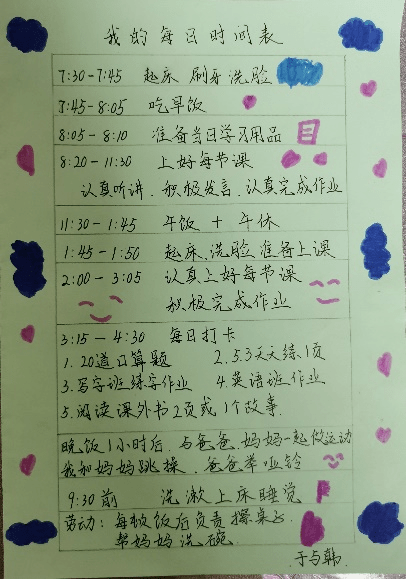 我的每日时间表
7:30-7:45 起床 刷牙 洗脸
7:45-8:05 吃早饭
8:05-8:10 准备当日学习用品
8:20-11:30 上好每节课
认真听讲、积极发言、认真完成作业
11:30-1:45 午饭+午休
1:45-1:50 起床、洗脸 准备上课
2:00-3:05 认真上好每节课
积极完成作业
3:15-4:30 每日打卡
1.20道口算题 2.5.3天天练1页
3.写字班练字作业 4.英语班作业
5.阅读课外书2页或1个故事.
晚饭1小时后,与爸爸妈妈一起做运动
我和妈妈跳操、爸爸举哑铃
9:30前 洗漱上床睡觉
劳动:每顿饭后负责擦桌子.
帮妈妈洗碗.
于与韩.